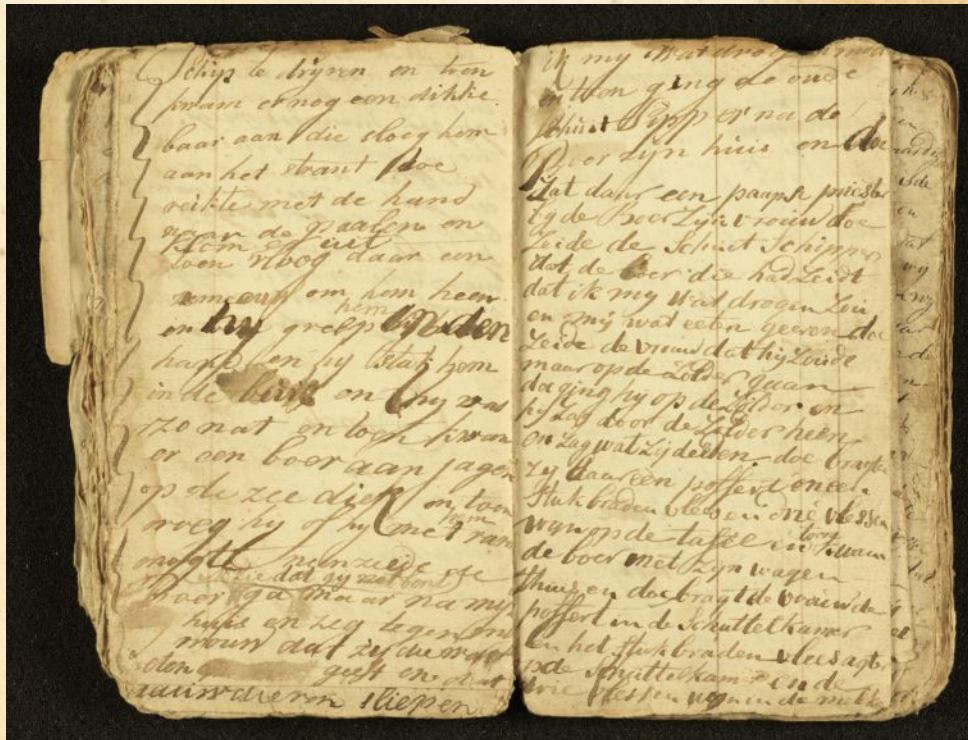 Schip te krijgen en toen
kwam er nog een dikke
baar aan die sloeg hem
aan het strant doe
reikte met de hand
naar de paalen en
klom er uit
toen vloog daar een
zemeeun om hem heen
en hy greep hem in den
hand en hy stak hem
in de buis en hy was
zo nat en toen kwam
er een boer aan jagen
op de zee diek en toen
vroeg hy of hy met hem
mogte neen zeide de
dat hy niet
boer ga maar na myn
huis en zeg tegen
vrouw dat zij die
geeft en dat
sliepen
ik my wat
en toen ging de oude
schuit Schipper na de
Boer zyn huis en doe
Zat daar een paapse priester
by de boer Zyn vrouw doe
Zeide de Schuit Schipper
dat de boer die had Zeidt
dat ik my wat drogen Zou
en mij wat eeten geeven doe
Zeide de vrouw dat hij Zoude
maar op de Zolder gaan
doe ging hy op de Zolder en
hy Zag door de Zolder heen
en Zag wat Zij deeden doe bragte
zy daar een poffert en een
stuk braden vlees en drie vlessen
wyn op de tafel en toen kwam
de boer met zyn wagen
thuis en doe bragt de vrouw de
poffert in de Schuttel kamer
en het stuk braden vlees agter
de Schuttel kamer en de
drie vlessen wyn in de